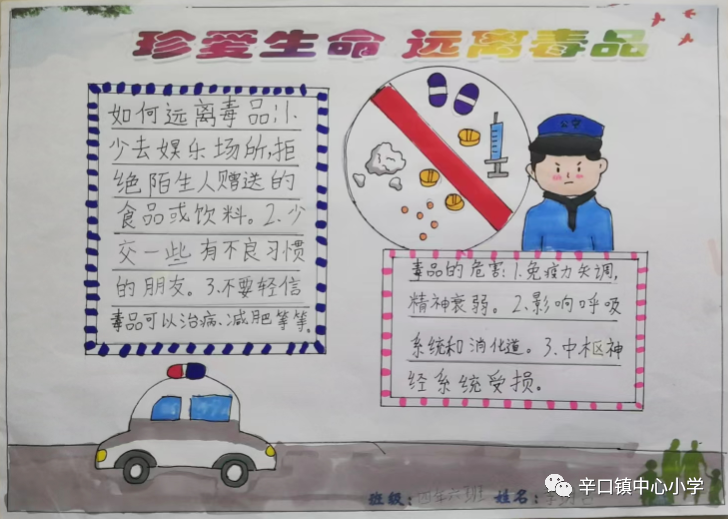 珍爱生命 远离毒品
如何远离毒品:1.
少去娱乐场所,拒
绝陌生人赠送的
食品或饮料。2.少
交一些有不良习惯
的朋友。3.不要轻信
毒品可以治病、减肥等等。
公安
毒品的危害:1.免疫力失调,
精神衰弱。2.影响呼吸
系统和消化道。3.中枢神
经系统受损。
班级:四年六班 姓名:
辛口镇中心小学